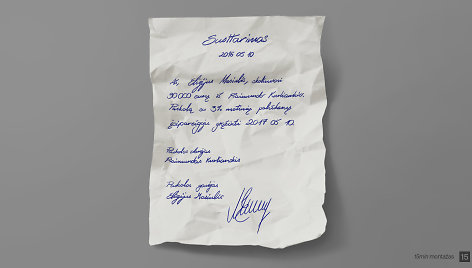 Susitarimas
2016 05 10
Aš, Eligijus Masiulis, skolinuosi
90 000 eurų iš Raimundo Kurlianskio.
Paskolą su 3% metinių palūkanų
įsipareigoju grąžinti 2017 05 10.
Paskolos davėjas
Raimundas Kurlianskis
Paskolos gavėjas
Eligijus Masiulis
15min montažas 15